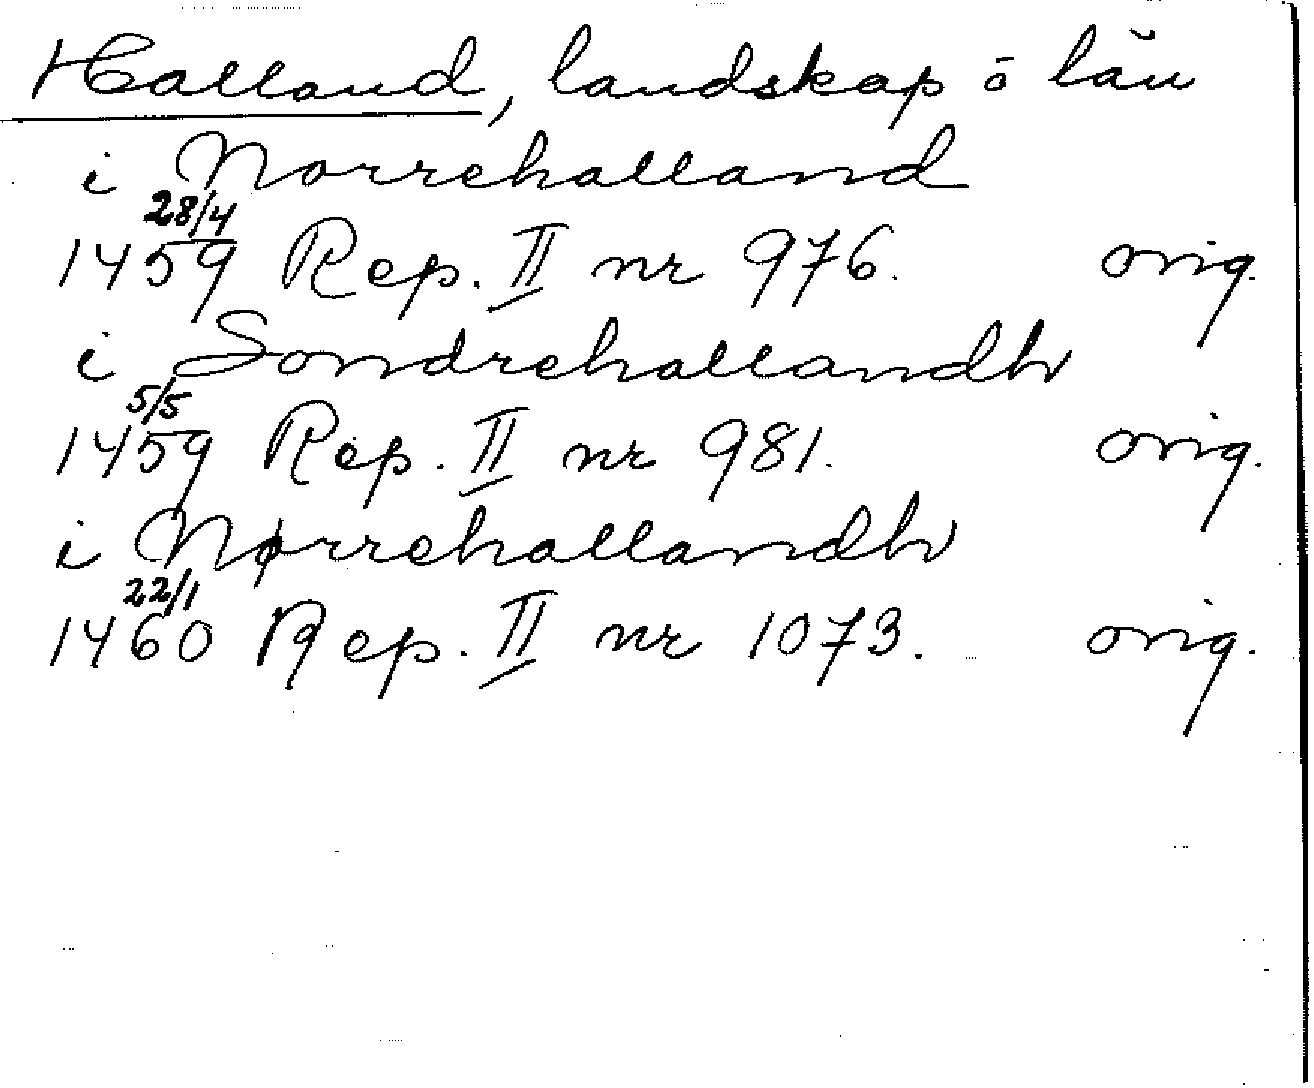 Halland, landskap o län
i Norrehalland
28/4
1459 Rep. II nr 976. orig.
i Sondrehallandh
5/5
1459 Rep. II nr 981. orig.
i Nørrehallandh
22/1
1460 Rep. II nr 1073. orig.